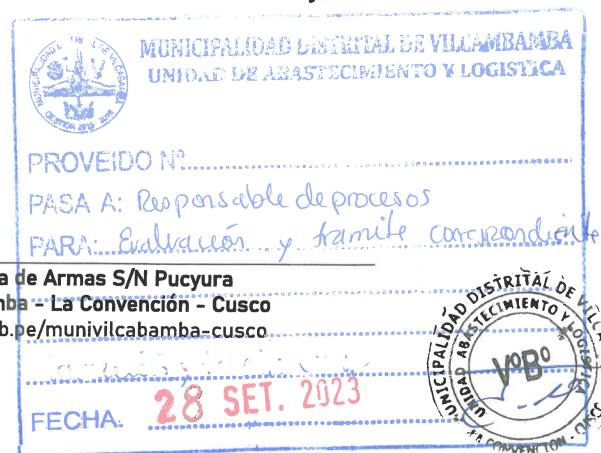 MUNICIPALIDAD DISTRITAL DE VILCAMBAMBA
UNIDAD DE ABASTECIMIENTO Y LOGISTICA
GESTION 2015 2018
PROVEIDO Nº
PASA A: Responsable de procesos
PARA: Evaluación y tramite correspondiente
a de Armas S/N Pucyura
mba - La Convención - Cusco
b.pe/munivilcabamba-cusco
MUNICIPALIDAD DISTRITAL DE VILCA
UNIDAD ABASTECIMIENTO Y LOGISTICA
VºBº
LA CONVENCION - CUSCO
FECHA: 28 SET. 2023